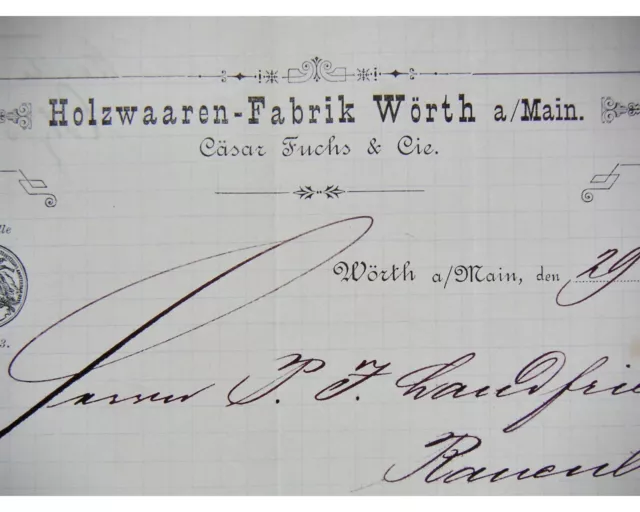 Holzwaaren-Fabrik Wörth a/Main.
Cäsar Fuchs & Cie.
Wörth a/Main, den 29
Herrn P. J. Landfrie
Rauenb